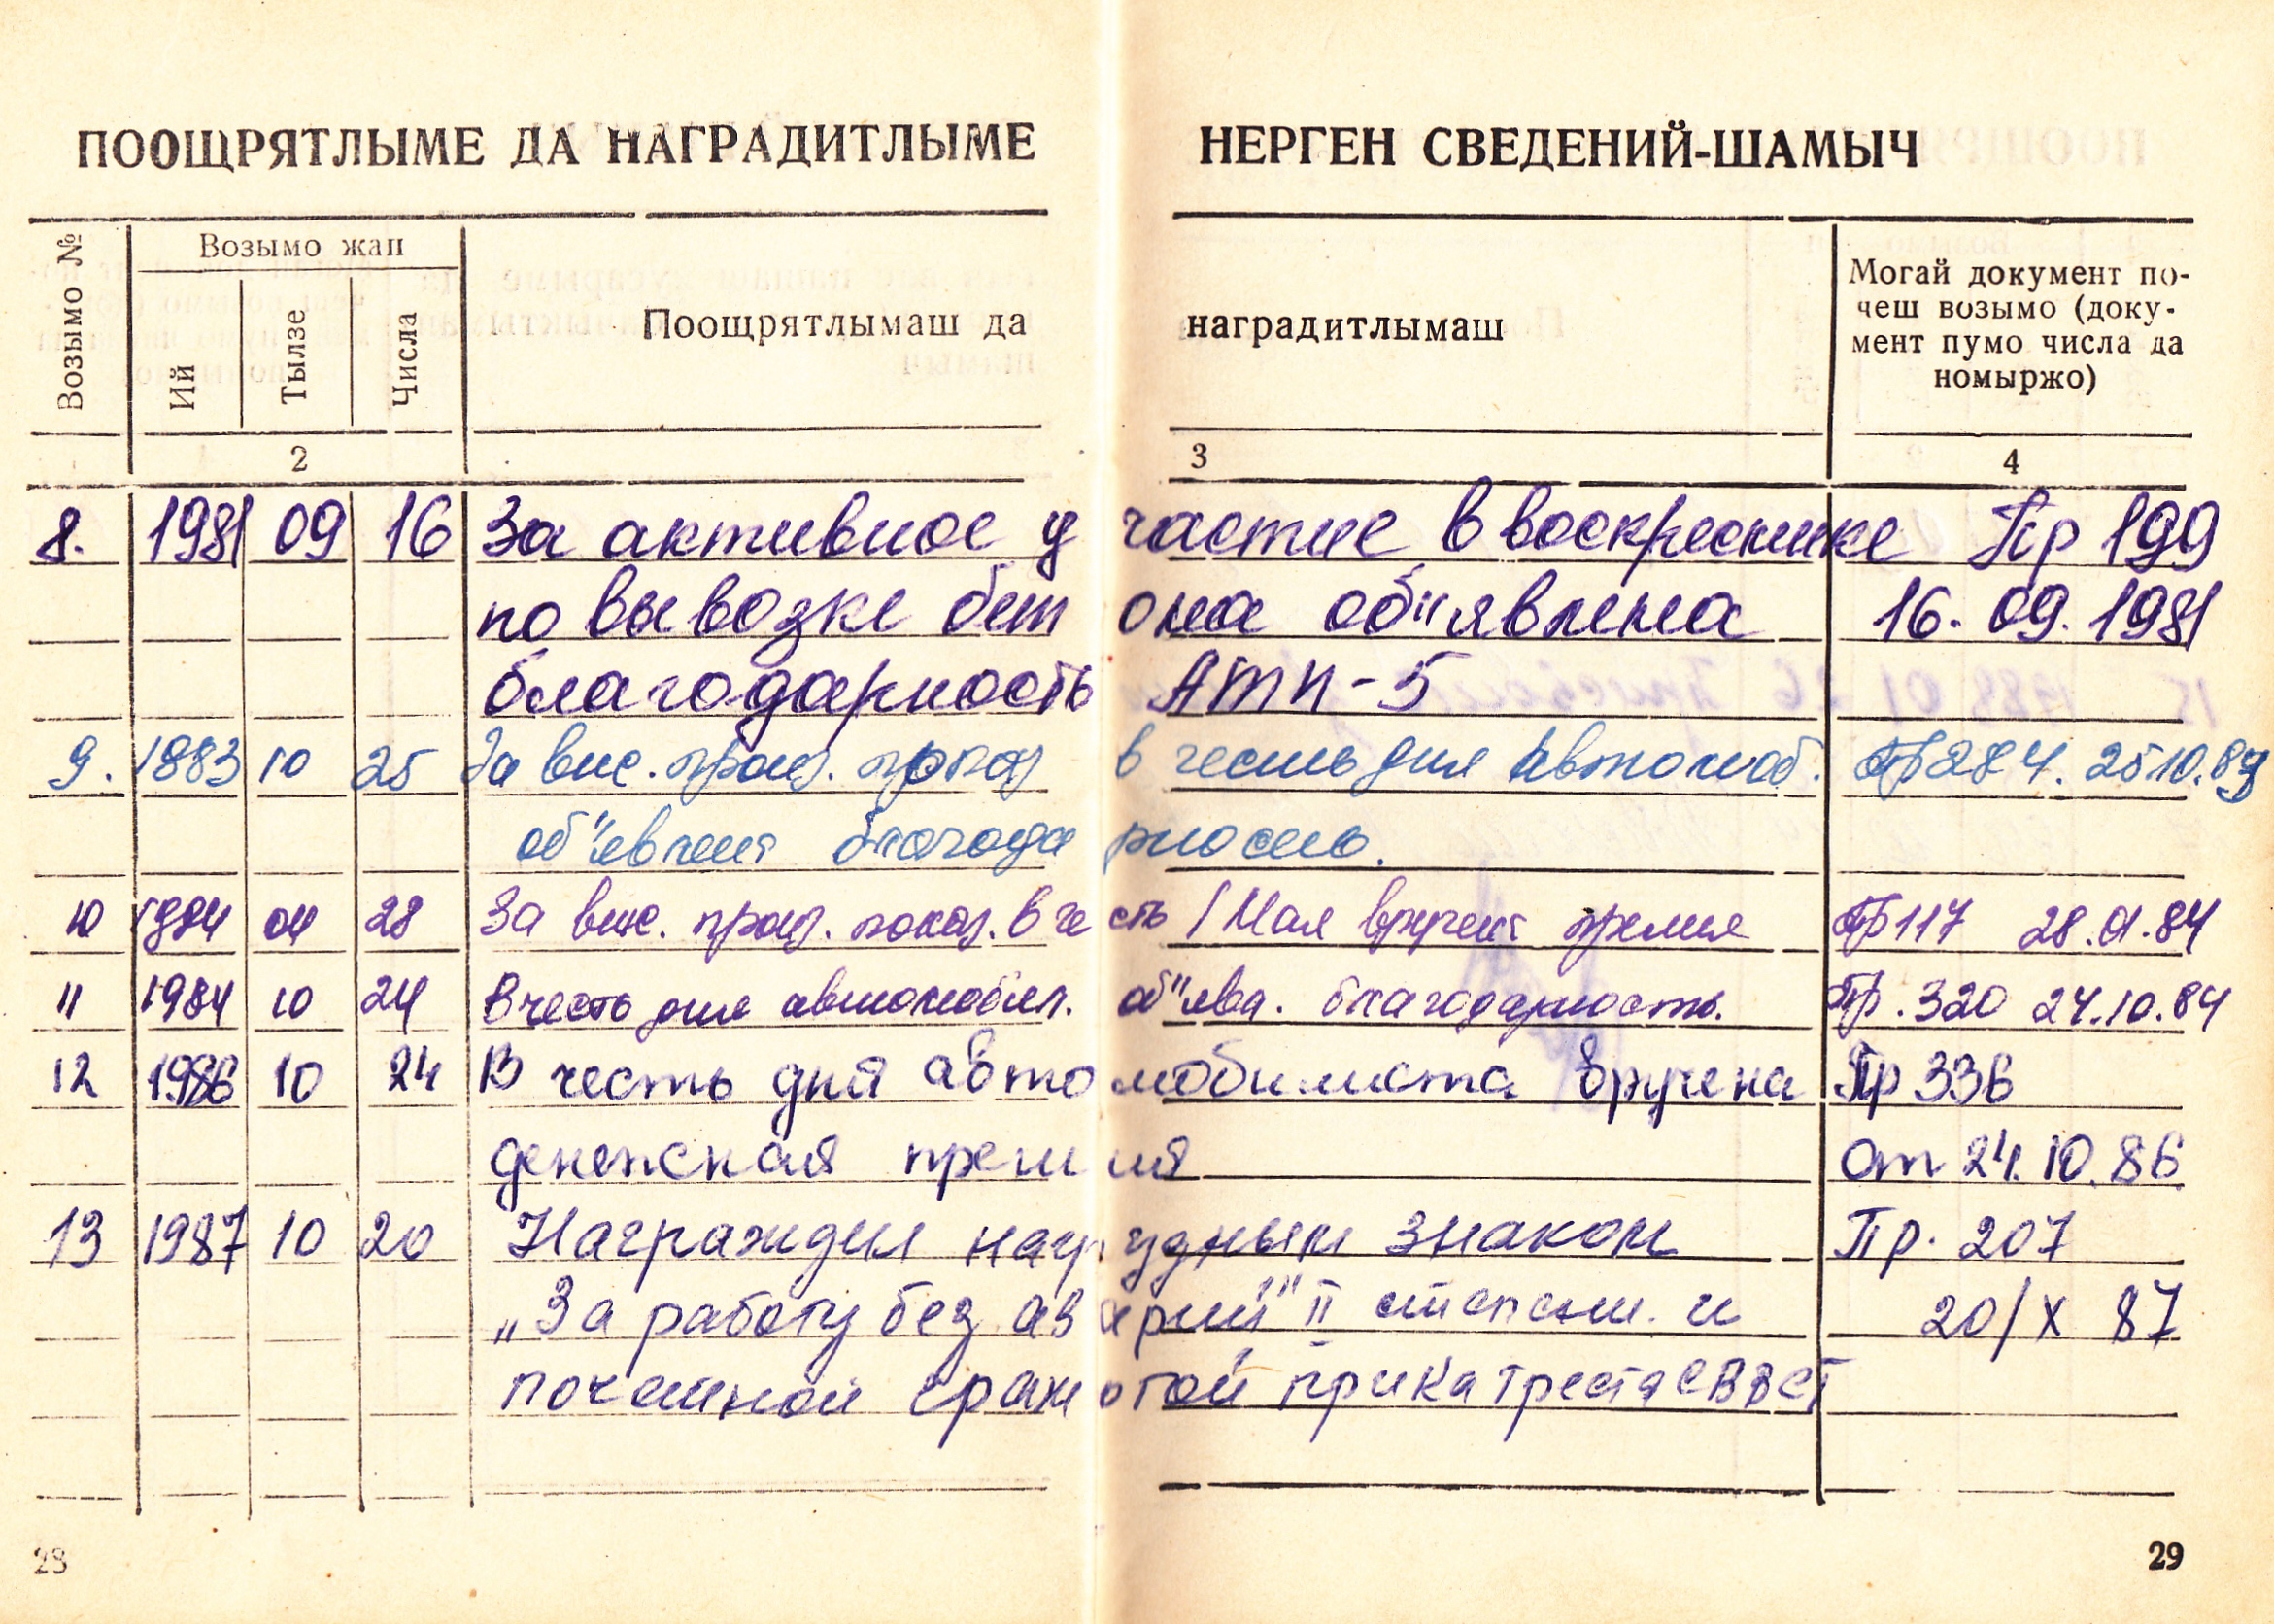 ПООЩРЯТЛЫМЕ ДА НАГРАДИТЛЫМЕ НЕРГЕН СВЕДЕНИЙ-ШАМЫЧ
Возымо №
Возымо жап
Ий
Тылзе
Числа
Поощрятлымаш да наградитлымаш
Могай документ по-
чеш возымо (доку-
мент пумо числа да
номыржо)
2 3 4
8. 1981 09 16 За активное участие в воскреснике Пр 199
по вывозке бетона об"явлена 16. 09. 1981
благодарность АТП-5
9. 1983 10 25 За выс. произ. показ в честь дня Автомоб. Пр 284. 25 10.83
об"явлена благодарность.
10 1984 04 28 За выс. произ. показ. в честь 1 Мая вручена премия Пр 117 28.04.84
11 1984 10 24 В честь дня автомобил. об"явл. благодарность. Пр. 320 24.10.84
12 1986 10 24 В честь дня автомобилиста вручена Пр 336
денежская премия от 24.10.86.
13 1987 10 20 Награжден нагрудным знаком Пр. 207
„За работу без аварий" II степени. и 20/X 87
почетной грамотой треста
28
29